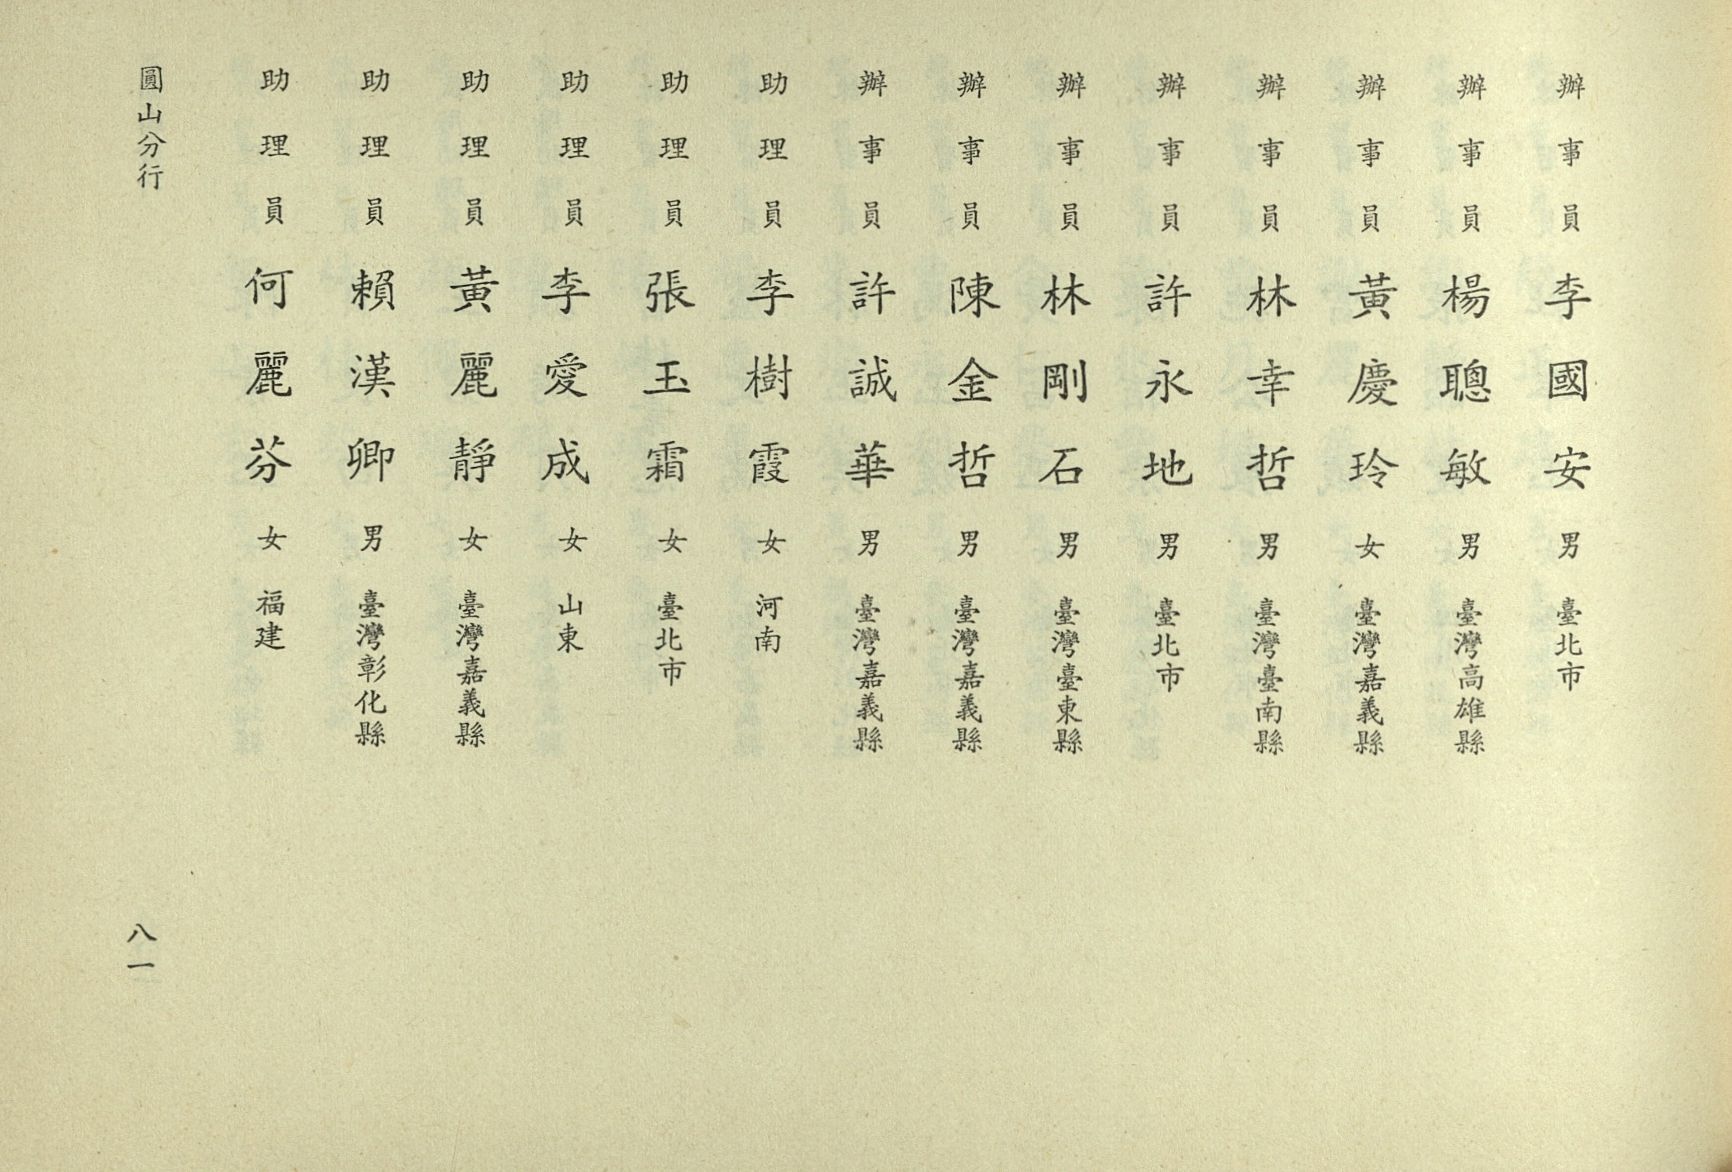 辦事員李國安男臺北市
辦事員楊聰敏男臺灣高雄縣
辦事員黃慶玲女臺灣嘉義縣
辦事員林幸哲男臺灣臺南縣
辦事員許永地男臺北市
辦事員林剛石男臺灣臺東縣
辦事員陳金哲男臺灣嘉義縣
辦事員許誠華男臺灣嘉義縣
助理員李樹霞女河南
助理員張玉霜女臺北市
助理員李愛成女山東
助理員黃麗靜女臺灣嘉義縣
助理員賴漢卿男臺灣彰化縣
助理員何麗芬女福建
圓山分行
八一